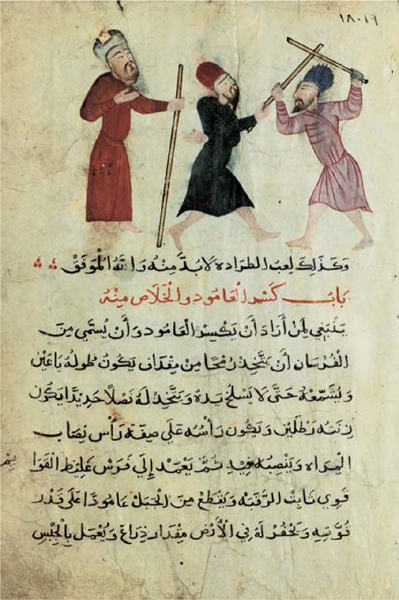 ١٨٠١٩
وكذلك لعب الطراده لا بد منه والله الموفق
باب كسر العامود والخلاص منه
ينبغي لمن أراد أن يكسر العامود وأن يسمي من
الفرسان أن يتخذ رمحا من مقداف يكون طوله باعين
ويشمعه حتى لا يسلخ يده ويتخذ له نصلا حديدا يكون
زنته رطلين ويكون رأسه على صفة رأس نصاب
المراه وينصبه فيه ثم يعمد إلي فرس غليظ القوا يم
قوي ثابت الرقبه ويقطع من الجبل عامودا على قدر
قوته ويحفر له في الأرض مقدار ذراع ويعمل بالجبس